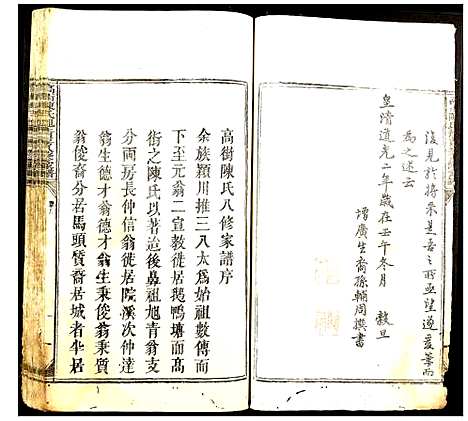 復見於將來是吾之所亟望遂爰筆而
為之述云
皇清道光二年歲在壬午冬月 穀旦
增廣生裔孫輔周撰書
高街陳氏八修家譜序
余族潁川推三八太爲始祖數傳而
下至元翁二宣教徙居鵝鴨塘而高
街之陳氏以著迨後鼻祖旭青翁支
分兩房長仲信翁徙居院溪次仲賢
翁生德才翁德才翁生秉俊翁秉質
翁俊裔分居馬頭質裔居城者半居